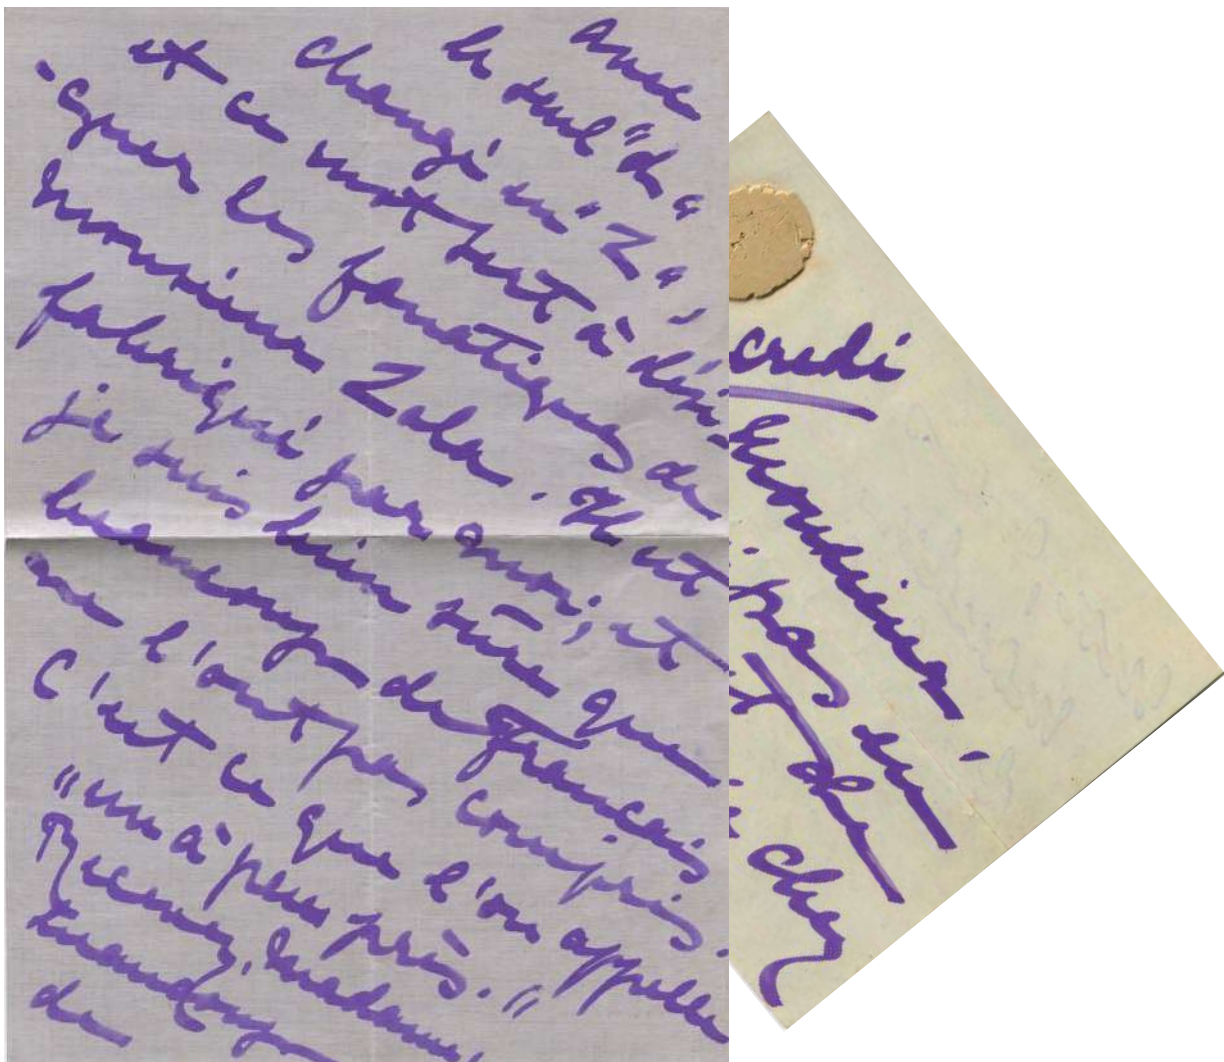 avec
le seul "d"
changé en "Z",
et ce mot sert à dési-
-gner les fanatiques de
Monsieur Zola. Il est
fabriqué par moi; et
je suis bien sûre que
beaucoup de Français
ne l'ont pas compris.
C'est ce que l'on appelle
"un à peu près."
Recevez, Madame,
beaucoup
de
credi
Monsieur
pas
chez